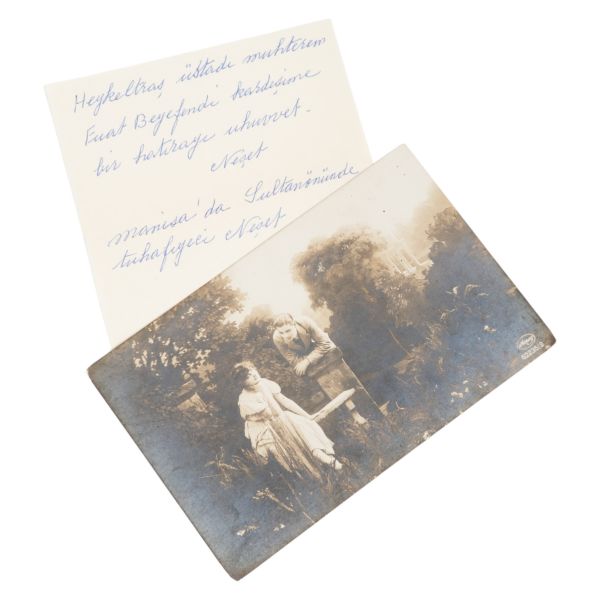 Heykeltraş üstadı muhterem
Fuat Beyefendi kardeşime
bir hatırayı uhuvvet.
Neşet
manisa'da Sultanönünde
tuhafiyeci Neşet